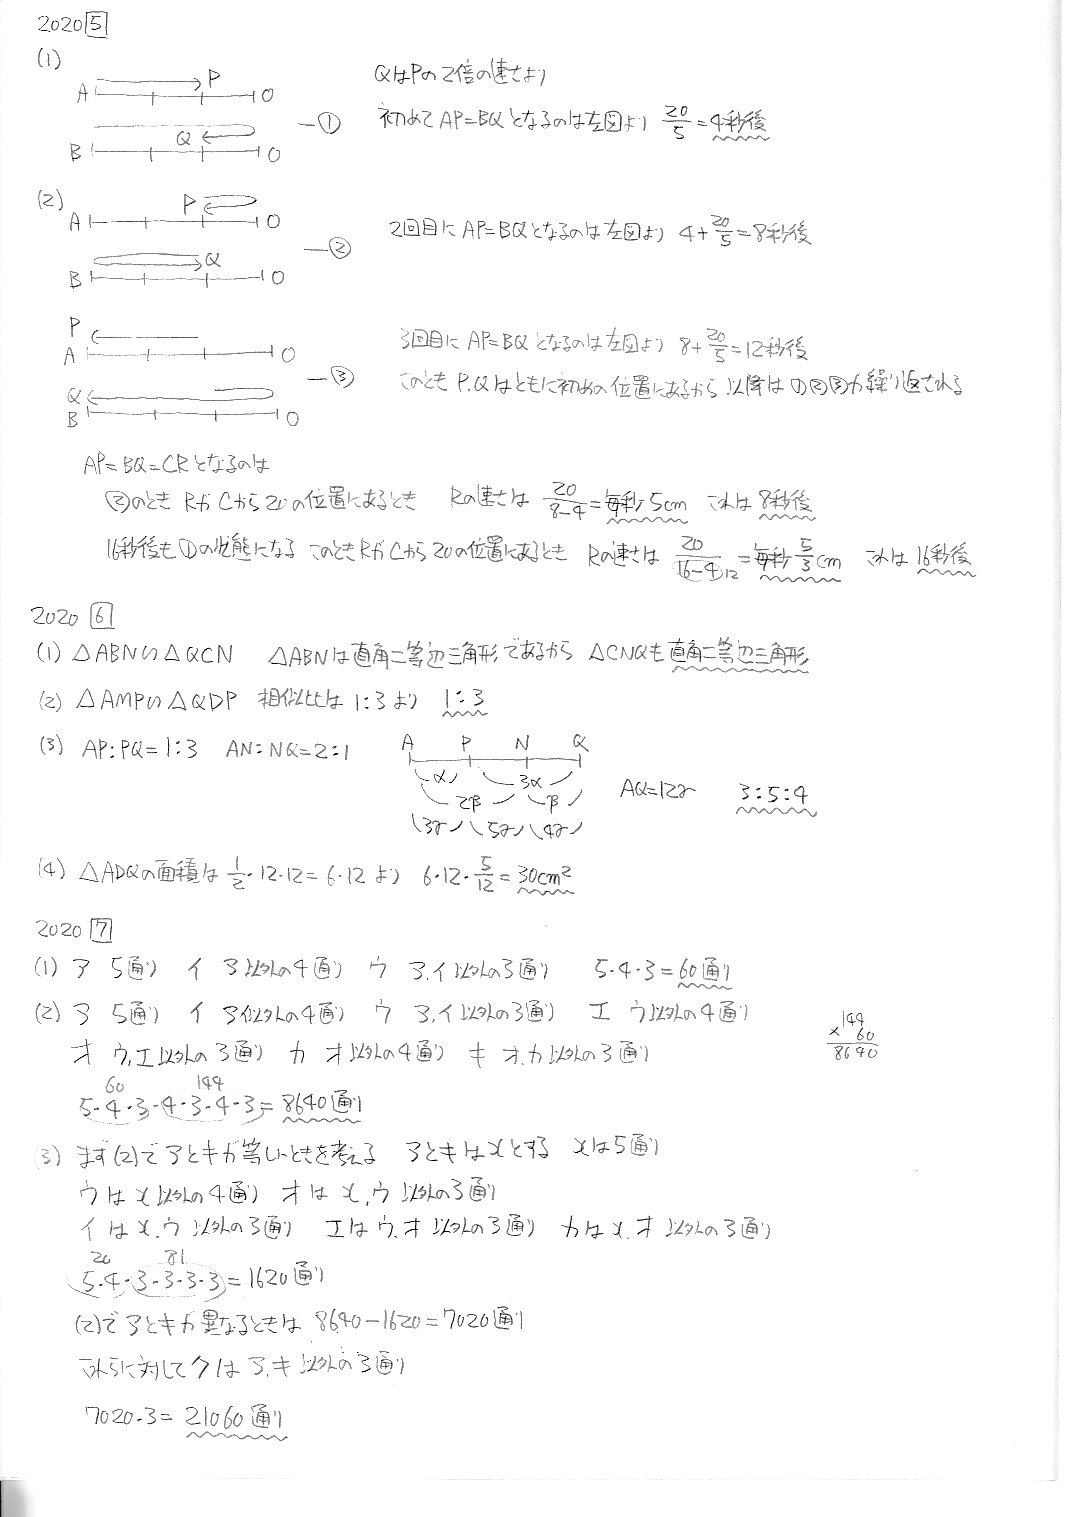 2020 5
(1)
A P O
B Q O
―①
QはPの2倍の速さより
初めて AP=BQ となるのは左図より 20/5 = 4秒後
(2)
A P O
B Q O
―②
2回目に AP=BQ となるのは左図より 4+20/5=8秒後
P
A O
Q
B O
―③
3回目に AP=BQ となるのは左図より 8+20/5=12秒後
このとき P.Q はともに初めの位置にあるから 以降は①②③が繰り返される
AP=BQ=CRとなるのは
②のとき RがCから20の位置にあるとき Rの速さは 20/(8-4) = 毎秒5cm これは 8秒後
16秒後も①の状態になる このときRがCから20の位置にあるとき Rの速さは 20/(16-4) 12 = 毎秒 5/3 cm これは 16秒後
2020 6
(1) △ABN∽△QCN △ABNは直角二等辺三角形であるから △CNQも直角二等辺三角形
(2) △AMP∽△QDP 相似比は 1:3より 1:3
(3) AP:PQ=1:3 AN:NQ=2:1
A P N Q
α 3α
2β β
3γ 5γ 4γ
AQ=12γ 3:5:4
(4) △ADQの面積は 1/2・12・12=6・12 より 6・12・5/12=30cm²
2020 7
(1) ア 5通り イ ア以外の4通り ウ ア.イ以外の3通り 5・4・3=60通り
(2) ア 5通り イ ア以外の4通り ウ ア.イ以外の3通り エ ウ以外の4通り
オ ウ.エ以外の3通り カ オ以外の4通り キ オ.カ以外の3通り
144
×60
8640
60 144
5・4・3・4・3・4・3=8640通り
(3) まず(2)でアとキが等しいときを考える アとキはxとする xは5通り
ウはx以外の4通り オはx.ウ以外の3通り
イはx.ウ以外の3通り エはウ.オ以外の3通り カはx.オ以外の3通り
20 81
5・4・3・3・3・3=1620通り
(2)でアとキが異なるときは 8640-1620=7020通り
これらに対してクはア.キ以外の3通り
7020・3=21060通り